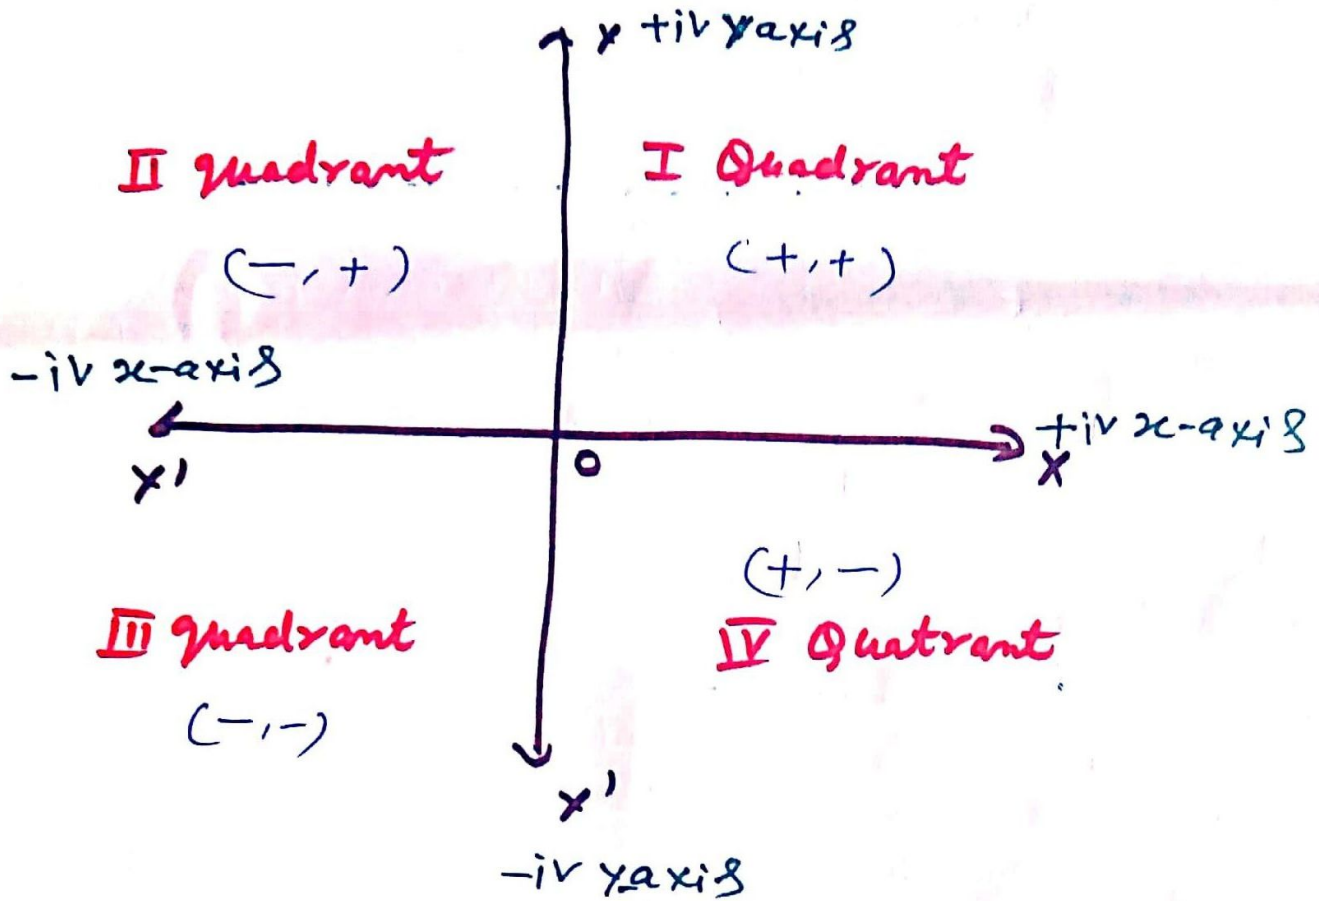 Y +iv yaxis
II quadrant
I Quadrant
(-, +)
(+, +)
-iv x-axis
+iv x-axis
X'
O
X
(+, -)
III quadrant
IV Quatrant
(-, -)
Y'
-iv y-axis